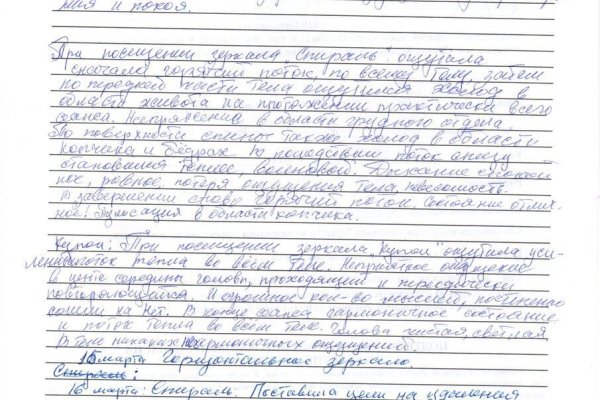 мия и покоя.
При посещении зеркала "Спираль" ощутила
сначала горячий поток, по всему телу, затем
по передней части тела ощущался холод в
области живота на протяжении практически всего
сеанса. Напряжение в области грудного отдела.
По поверхности спины также холод в области
копчика и бедрах. В последствии поток снизу
становился теплее, волновой. Дыхание спокой
ное, ровное, потеря ощущения тела, невесомость.
В завершении снова горячий поток. Состояние отлич-
ное. Пульсация в области копчика.
Купол: При посещении зеркала "Купол" ощутила уси-
ление поток тепла во всем теле. Неприятное ощущение
в центе середины головы, проходящий и переодически
повторяющийся. И огромное кол-во мыслей, постепенно
сошли на нет. В конце сеанса гармоничное состояние
и поток тепла во всем теле. Голова чистая, светлая
В теле никаких не гармоничных ощущений.
15 марта Горизонтальное зеркало.
Спираль:
16 марта: Спираль. Поставила цели на удаления